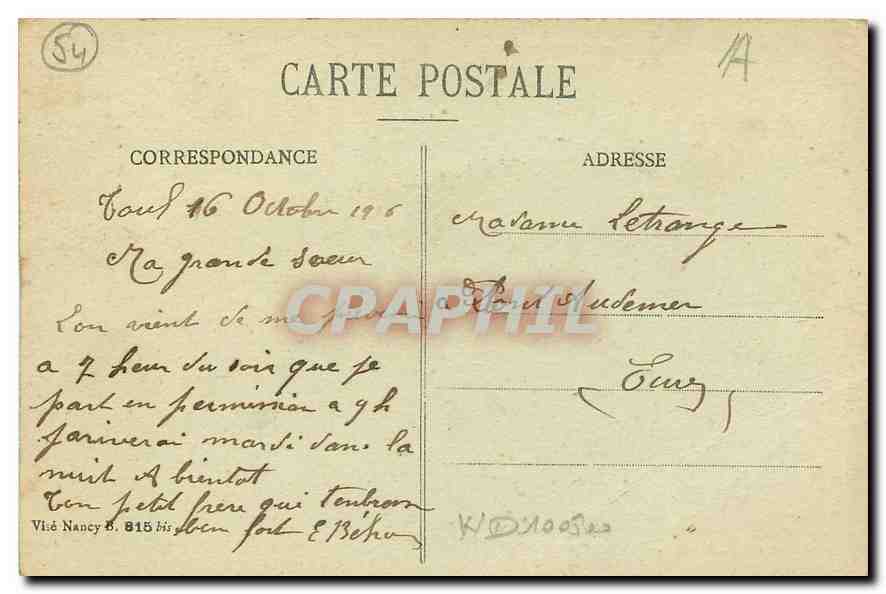 54
A
CARTE POSTALE
CORRESPONDANCE
Toul 16 Octobre 1916
Ma grande soeur
L'on vient de me prévenir
a 7 heur du soir que je
part en permission a 9 h
j'ariverai mardi dans la
nuit A bientot
Ton petit frere qui t'embrasse
bien fort E
Visé Nancy B. 815 bis
ADRESSE
Madame Letrange
a Pont Audemer
(Eure)
CPAPHIL